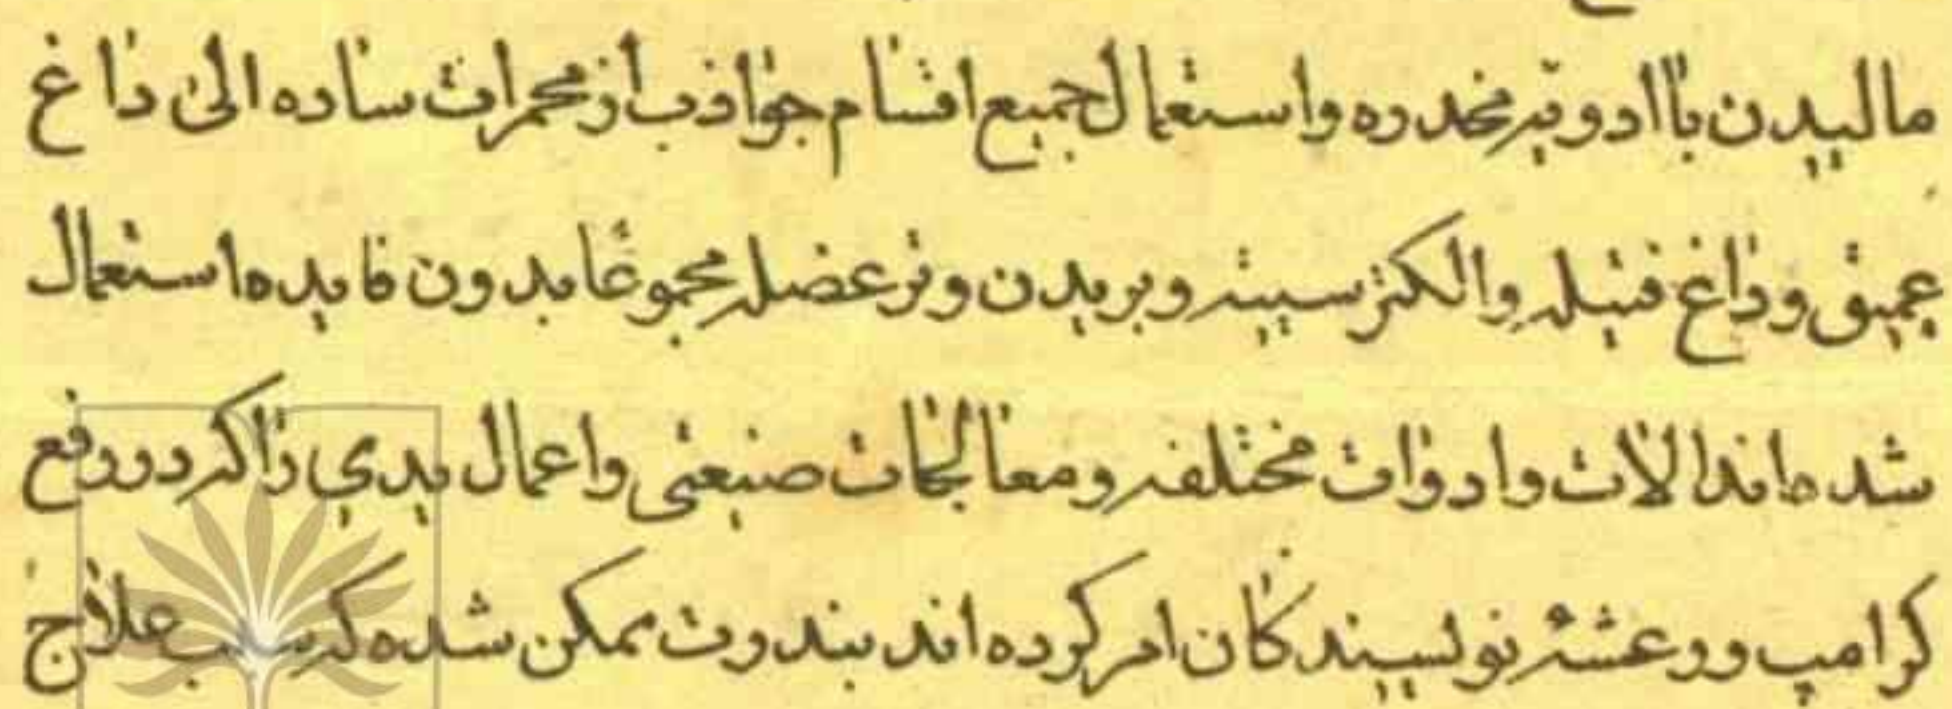 مالیدن با ادویه مخدره و استعمال جمیع اقسام جواذب از محمرات ساده الی داغ
عمیق و داغ فتیله و الکتریسیته و بریدن وتر عضله مجموعا بدون فایده استعمال
شده‌اند الات و ادوات مختلفه و معالجات صنعتی و اعمال یدی را که در رفع
کرامپ و رعشهٔ نویسندکان امر کرده اند بندرت ممکن شده که سبب علاج